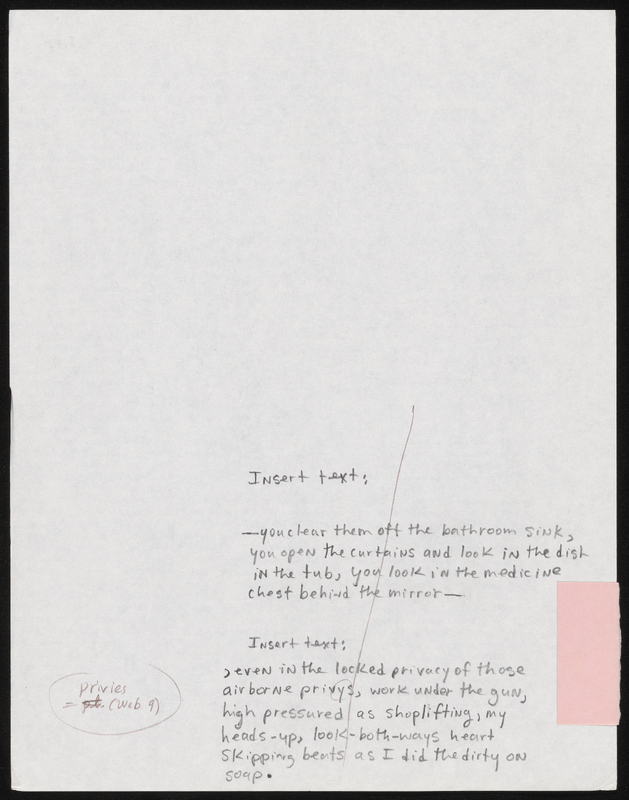 Insert text:
—you clear them off the bathroom sink,
you open the curtains and look in the dish
in the tub, you look in the medicine
chest behind the mirror—
Insert text:
, even in the locked privacy of those
airborne privys, work under the gun,
high pressured as shoplifting, my
heads-up, look-both-ways heart
skipping beats as I did the dirty on
soap.
privies
= (Web 9)